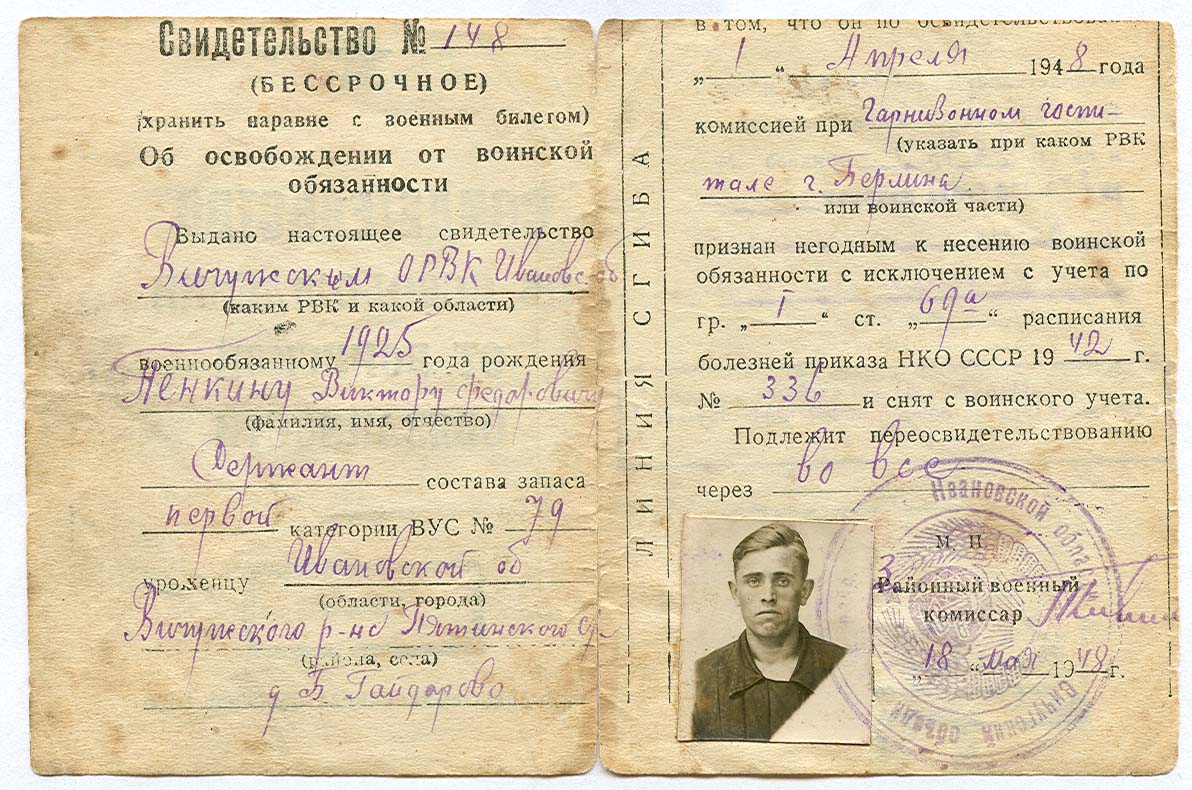 Свидетельство № 148
(БЕССРОЧНОЕ)
(хранить наравне с военным билетом)
Об освобождении от воинской
обязанности
Выдано настоящее свидетельство
Вичужским ОРВК Ивановс об
(каким РВК и какой области)
военнообязанному 1925 года рождения
Пенкину Виктору Федоровичу
(фамилия, имя, отчество)
Сержант состава запаса
первой категории ВУС № 79
уроженцу Ивановской об
(области, города)
Вичужского р-на Пятинского
(района, села)
д Б. Гайдарово
ЛИНИЯ СГИБА
в том, что он по освидетельствовании
„ 1 “ Апреля 1948 года
комиссией при Гарнизонном госпи-
(указать при каком РВК
тале г. Берлина.
или воинской части)
признан негодным к несению воинской
обязанности с исключением с учета по
гр. „ I “ ст. „ 69а “ расписания
болезней приказа НКО СССР 19 42 г.
№ 336 и снят с воинского учета.
Подлежит переосвидетельствованию
через во все
Ивановской
М П
Районный военный
комиссар
„ 18 “ мая 1948 г.
Вичугский объедин